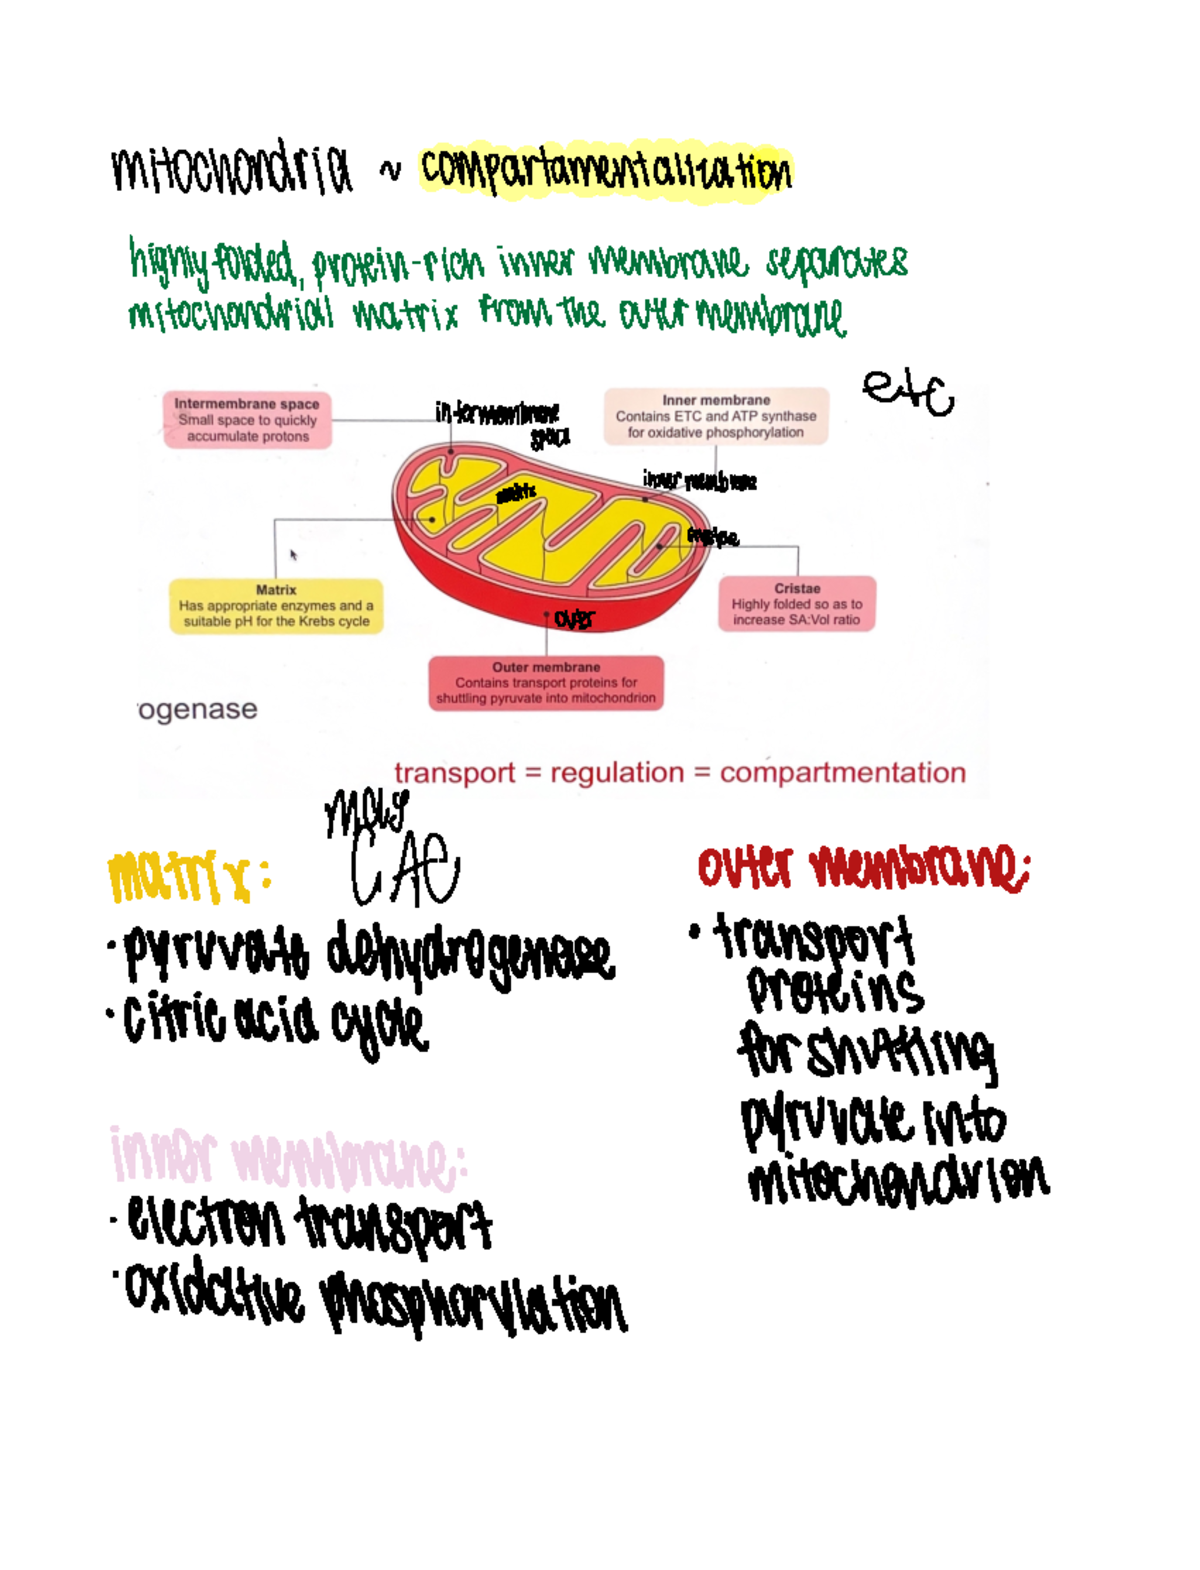 mitochondria ~ compartamentalization
highly folded, protein-rich inner membrane separates
mitochondriall matrix from the outer membrane
etc
Intermembrane space
Small space to quickly
accumulate protons
intermembrane
space
Inner membrane
Contains ETC and ATP synthase
for oxidative phosphorylation
inner membrane
matrix
Matrix
Has appropriate enzymes and a
suitable pH for the Krebs cycle
Cristae
Highly folded so as to
increase SA:Vol ratio
outer
Outer membrane
Contains transport proteins for
shuttling pyruvate into mitochondrion
ogenase
transport = regulation = compartmentation
matrix:
• pyruvate dehydrogenase
• citric acid cycle
inner membrane:
• electron transport
• oxidative phosphorylation
outer membrane:
• transport
proteins
for shuttling
pyruvate into
mitochondrion